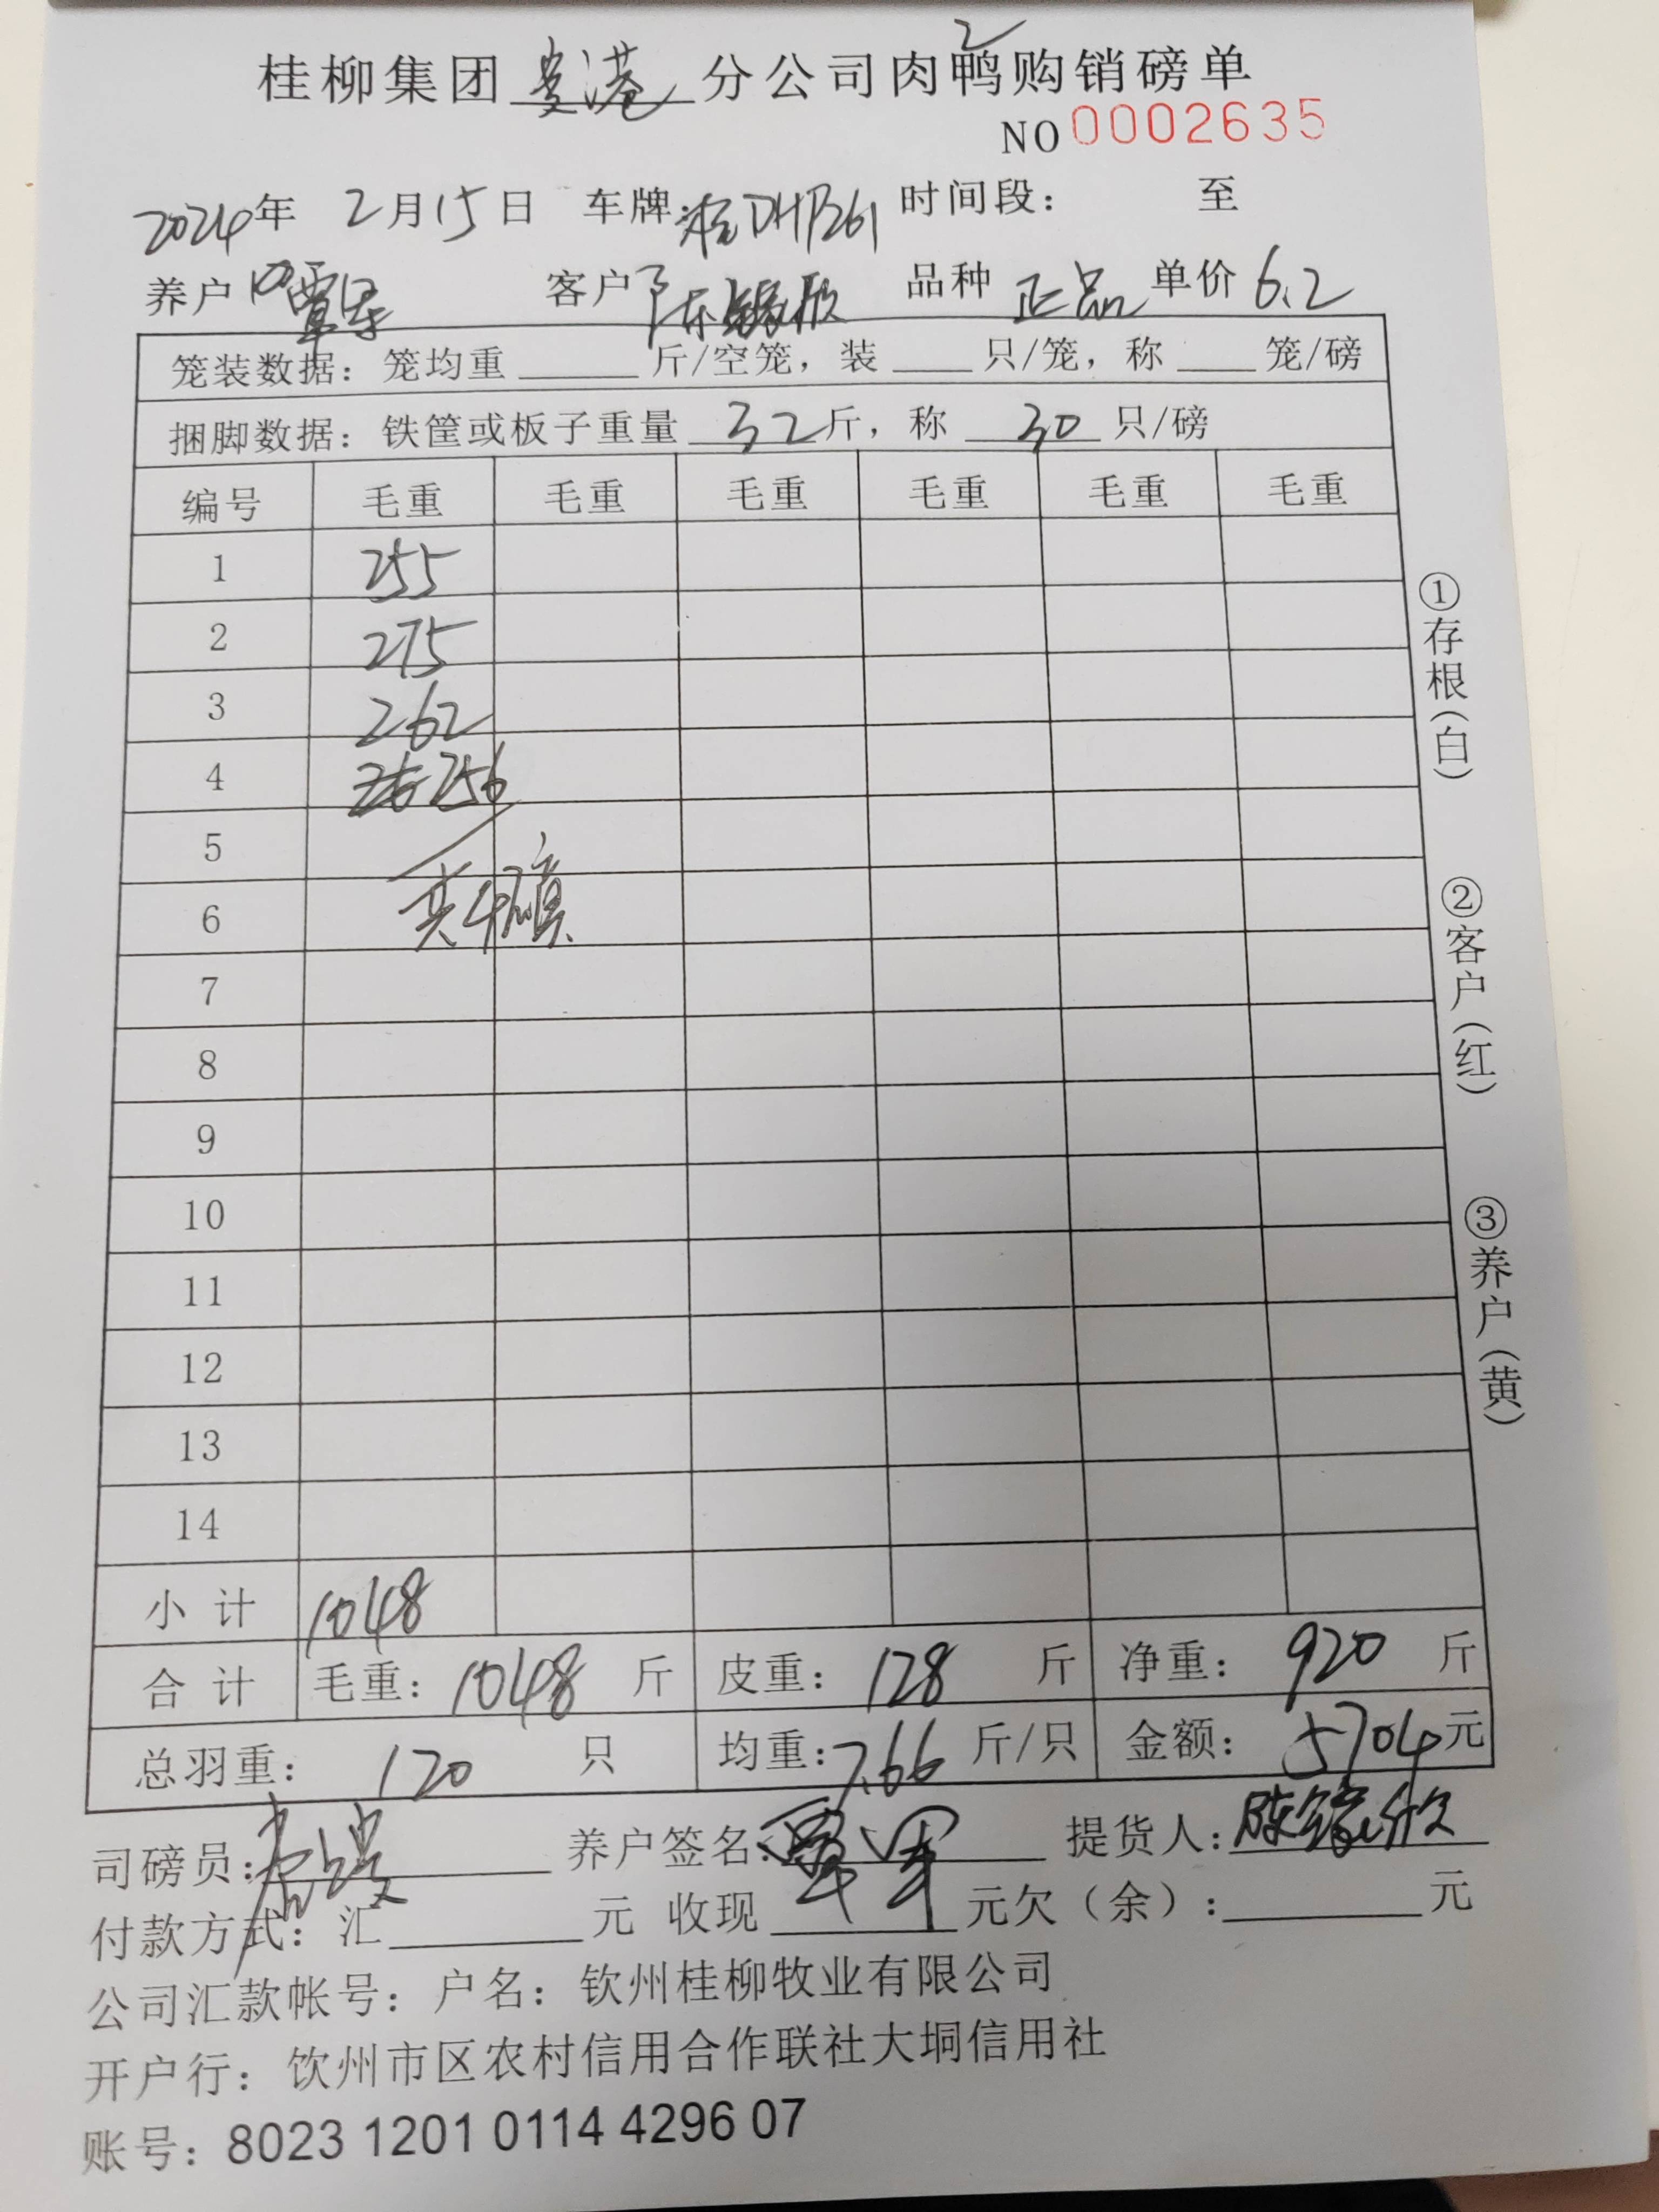 2
桂柳集团贵港分公司肉鸭购销磅单
NO 0002635
2024年 2月15日 车牌:桂DHB261 时间段: 至
养户 覃军 客户 陈缘欣 品种 正品 单价 6.2
笼装数据: 笼均重____斤/空笼, 装____只/笼, 称____笼/磅
捆脚数据: 铁筐或板子重量 32斤, 称 30 只/磅
编号 毛重 毛重 毛重 毛重 毛重 毛重
1 255
2 275
3 262
4 256
5
6 共4磅
7
8
9
10
11
12
13
14
小计 1048
合计 毛重: 1048 斤 皮重: 128 斤 净重: 920 斤
总羽重: 120 只 均重: 7.66 斤/只 金额: 5704元
司磅员: 养户签名: 覃军 提货人: 陈缘欣
付款方式: 汇____元 收现____元欠(余):____元
公司汇款帐号: 户名: 钦州桂柳牧业有限公司
开户行: 饮州市区农村信用合作联社大垌信用社
账号: 8023 1201 0114 4296 07
①存根(白)
②客户(红)
③养户(黄)